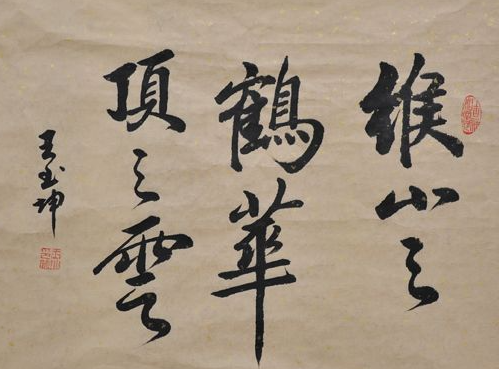 緱山之
鶴華
頂之雲
王玉坤